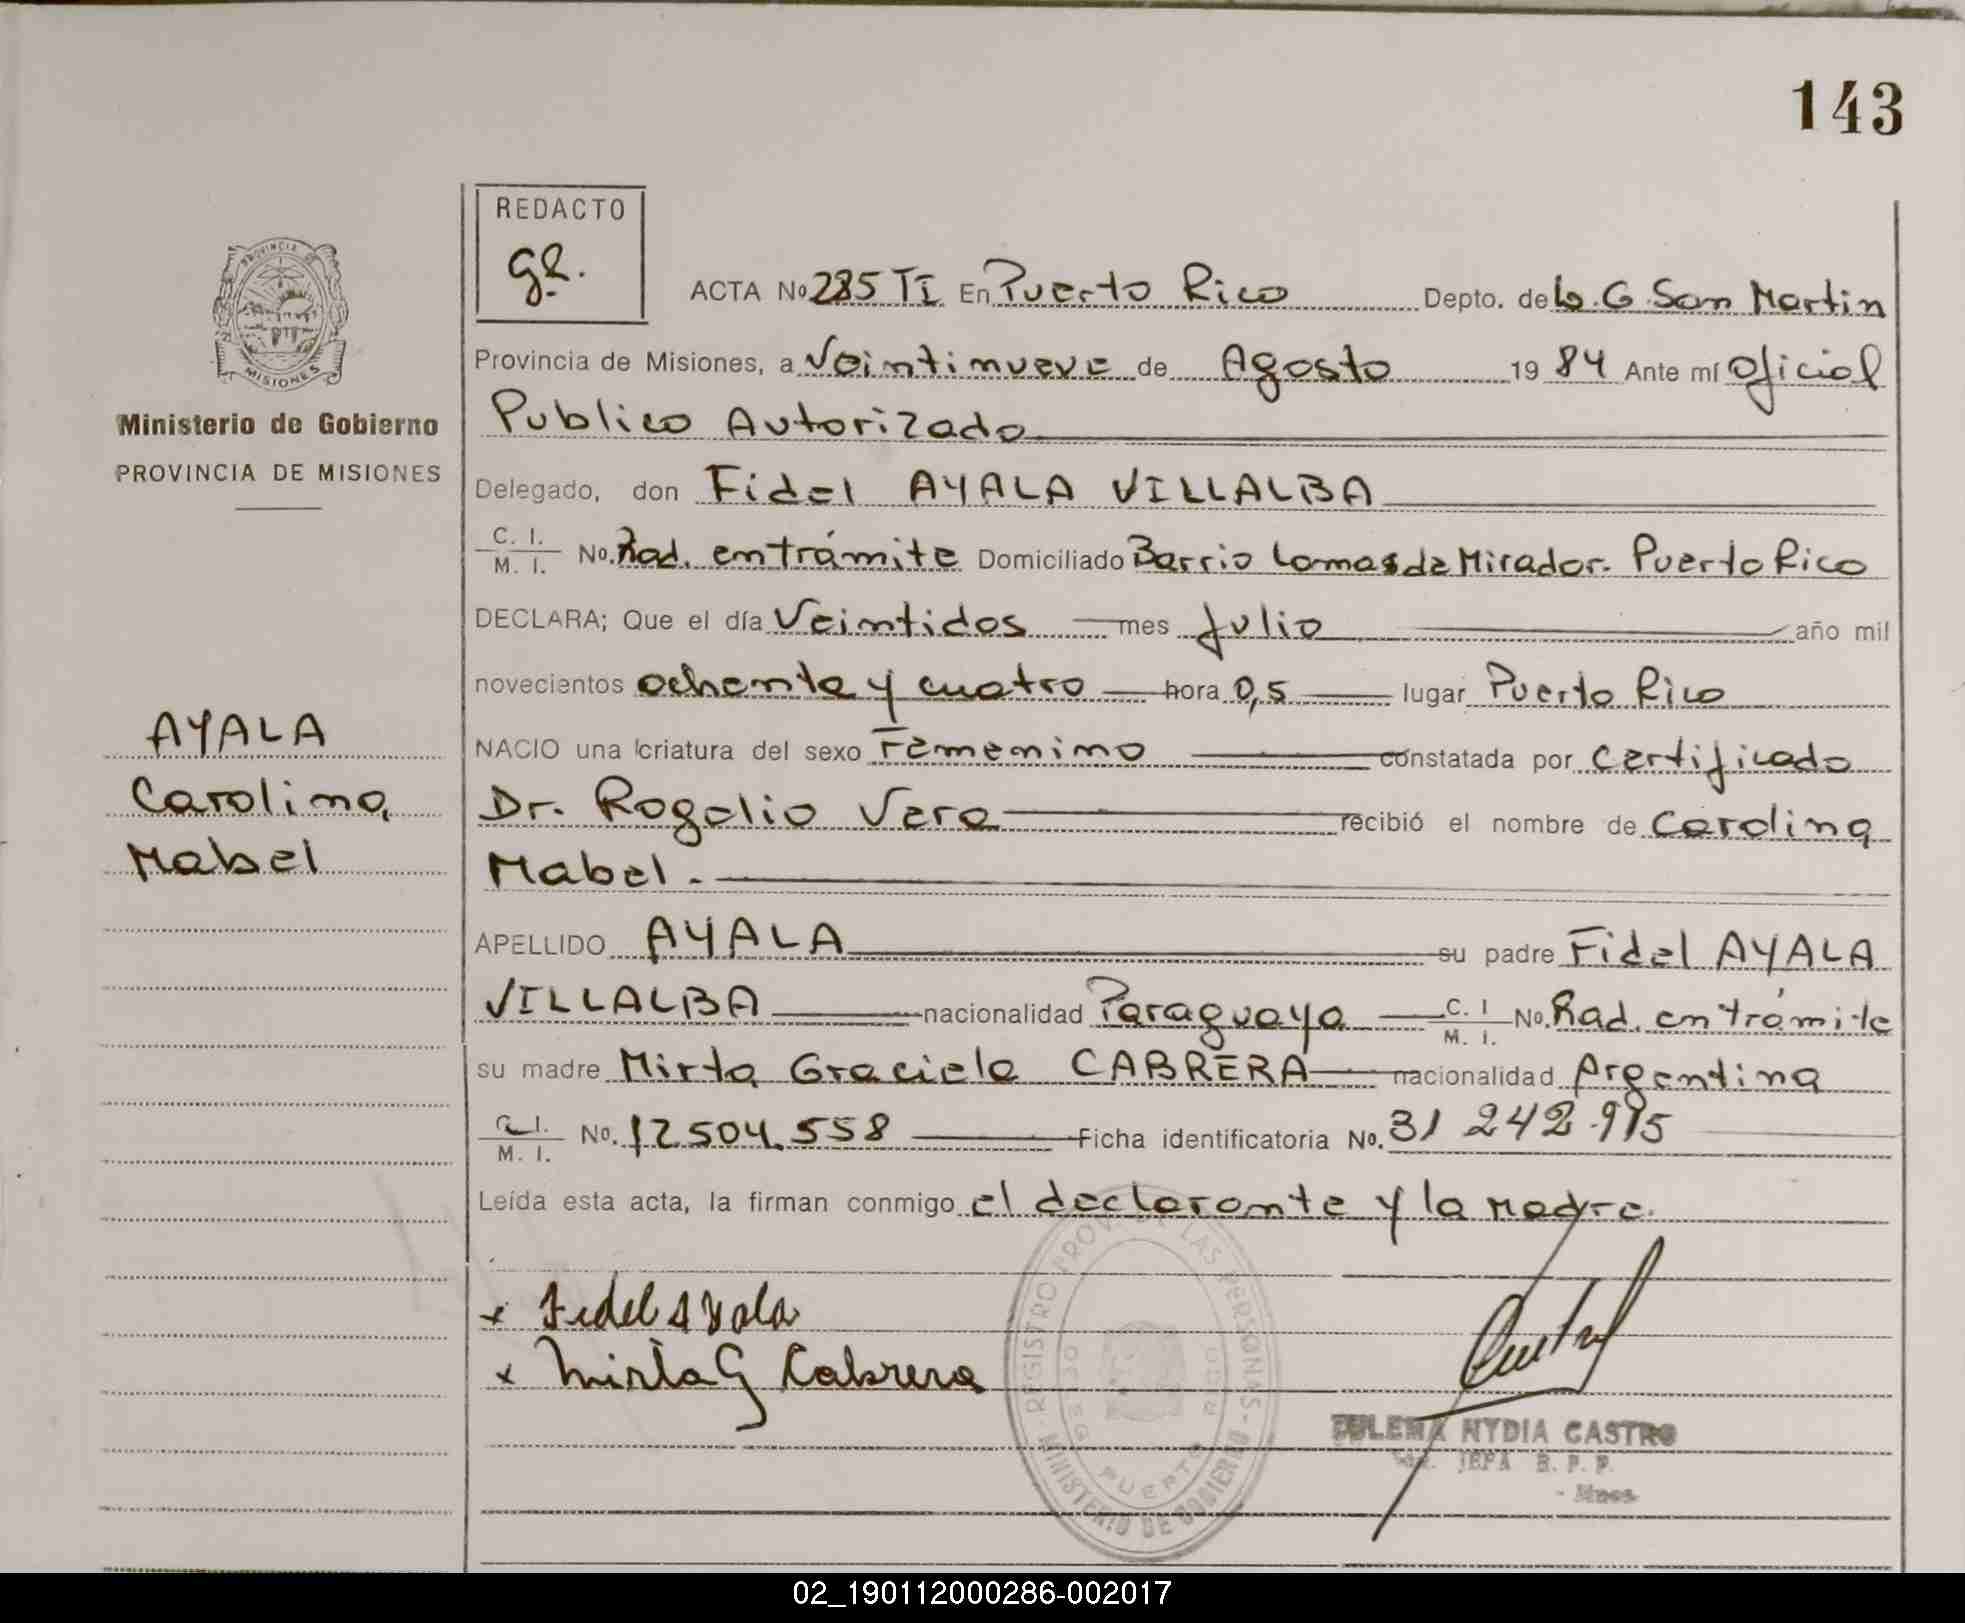 143
REDACTO
gR.
PROVINCIA DE
MISIONES
Ministerio de Gobierno
PROVINCIA DE MISIONES
ACTA No 285 TI En Puerto Rico Depto. de L. G. San Martin
Provincia de Misiones, a Veintinueve de Agosto 19 84 Ante mí Oficial
Publico Autorizado
Delegado, don Fidel AYALA VILLALBA
C. I.
M. I. No. Rad. en trámite Domiciliado Barrio Lomas de Mirador. Puerto Rico
DECLARA; Que el día Veintidos mes Julio año mil
novecientos ochenta y cuatro hora 0,5 lugar Puerto Rico
NACIO una criatura del sexo Femenino constatada por Certificado
Dr. Rogelio Vera recibió el nombre de Carolina
Mabel.
APELLIDO AYALA su padre Fidel AYALA
VILLALBA nacionalidad Paraguaya C. I
M. I. No. Rad. en trámite
su madre Mirta Graciela CABRERA nacionalidad Argentina
C. I.
M. I. No. 12504.558 Ficha identificatoria No. 31 242.915
Leída esta acta, la firman conmigo el declarante y la Madre.
AYALA
Carolina
Mabel
x Fidel Ayala
x Mirta G Cabrera
REGISTRO PROV. DE LAS PERSONAS - MINISTERIO DE GOBIERNO
PUERTO
ZULEMA NYDIA CASTRO
JEFA R. P. P.
- Mnes
02_190112000286-002017